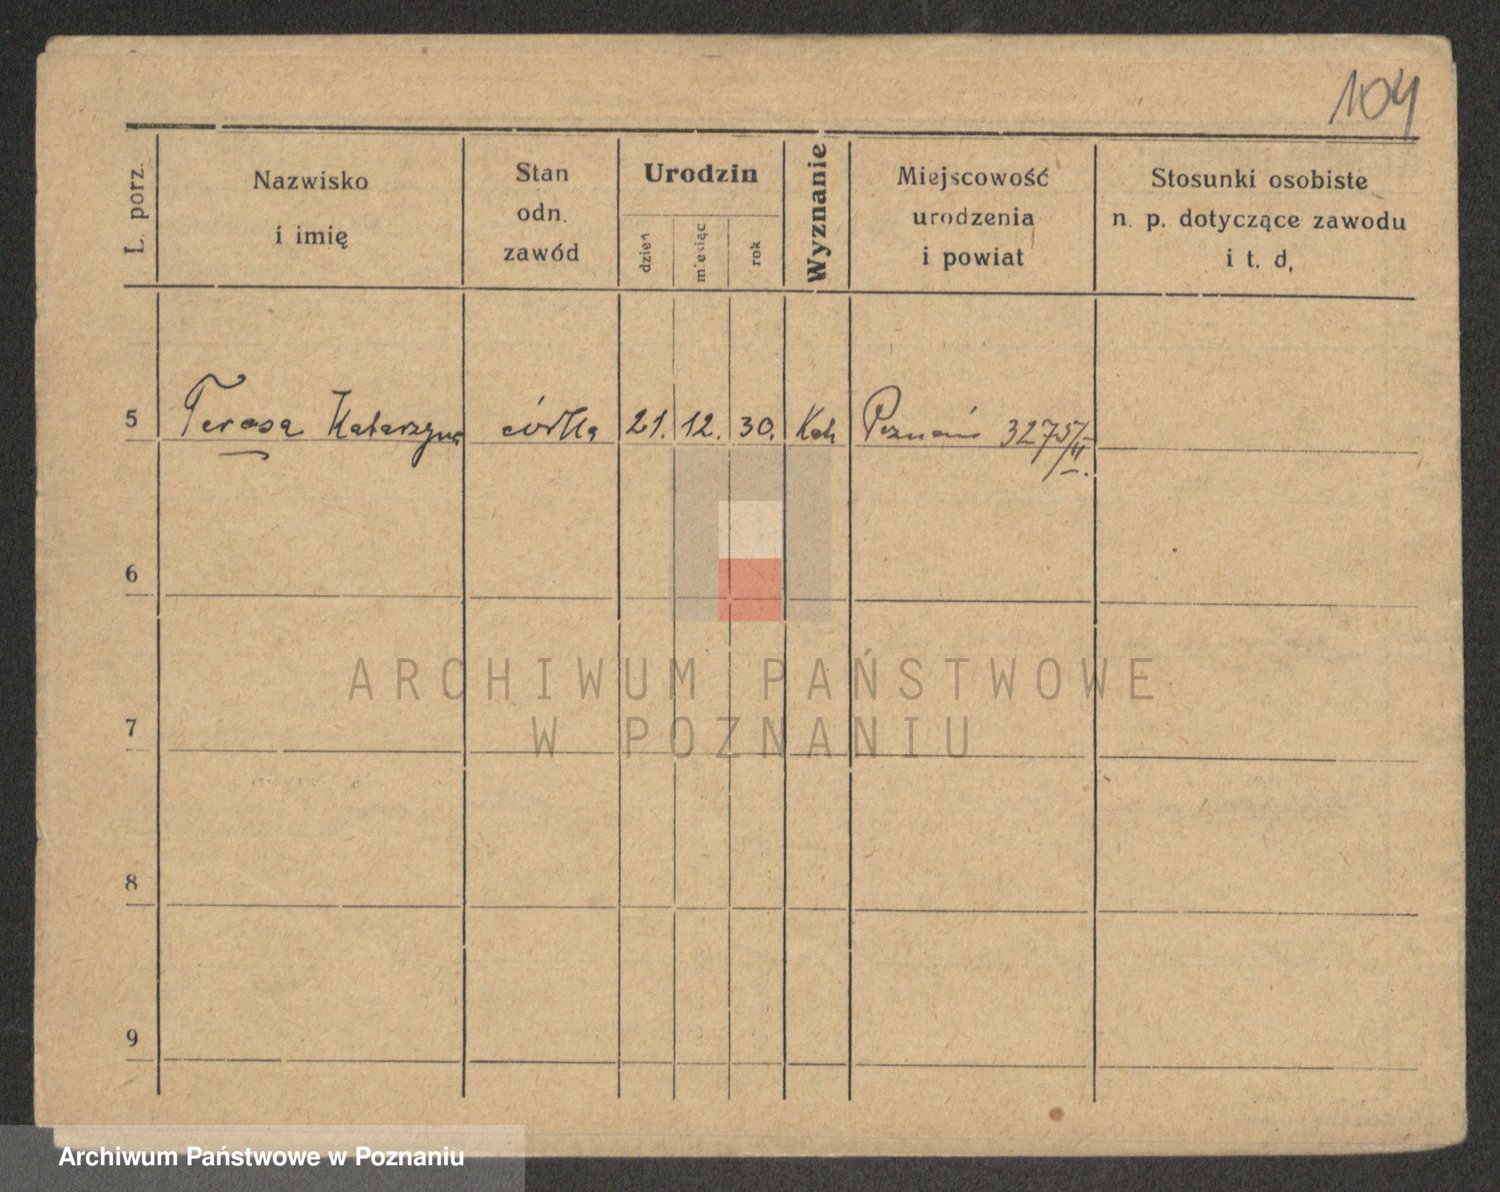 104
L. porz.
Nazwisko
i imię
Stan
odn.
zawód
Urodzin
dzień
miesiąc
rok
Wyznanie
Miejscowość
urodzenia
i powiat
Stosunki osobiste
n. p. dotyczące zawodu
i t. d.
5 Teresa Katarzyna córka 21. 12. 30. Kat Poznań 3275/II.
6
ARCHIWUM PAŃSTWOWE
W POZNANIU
7
8
9
Archiwum Państwowe w Poznaniu